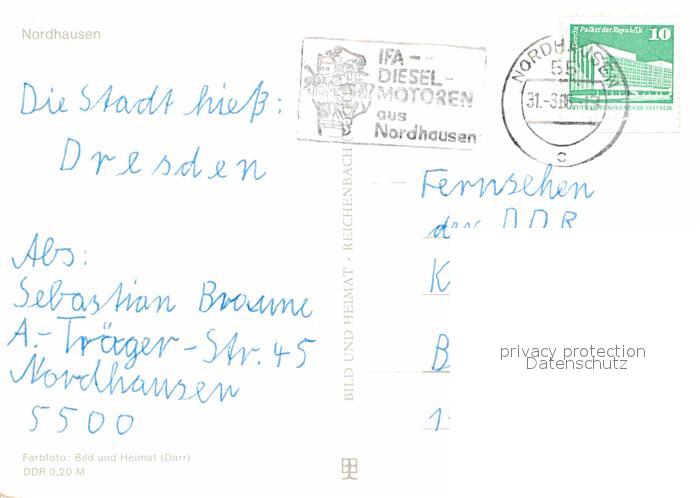 Nordhausen
Die Stadt hieß:
Dresden
Abs:
Sebastian Braune
A.-Träger-Str. 45
Nordhausen
5500
Farbfoto: Bild und Heimat (Darr)
DDR 0,20 M
BILD UND HEIMAT · REICHENBACH
IFA-
DIESEL-
MOTOREN
aus
Nordhausen
NORDHAUSEN
55
c
Palast der Republik 10
Fernsehen
der DDR
K
B
1
privacy protection
Datenschutz